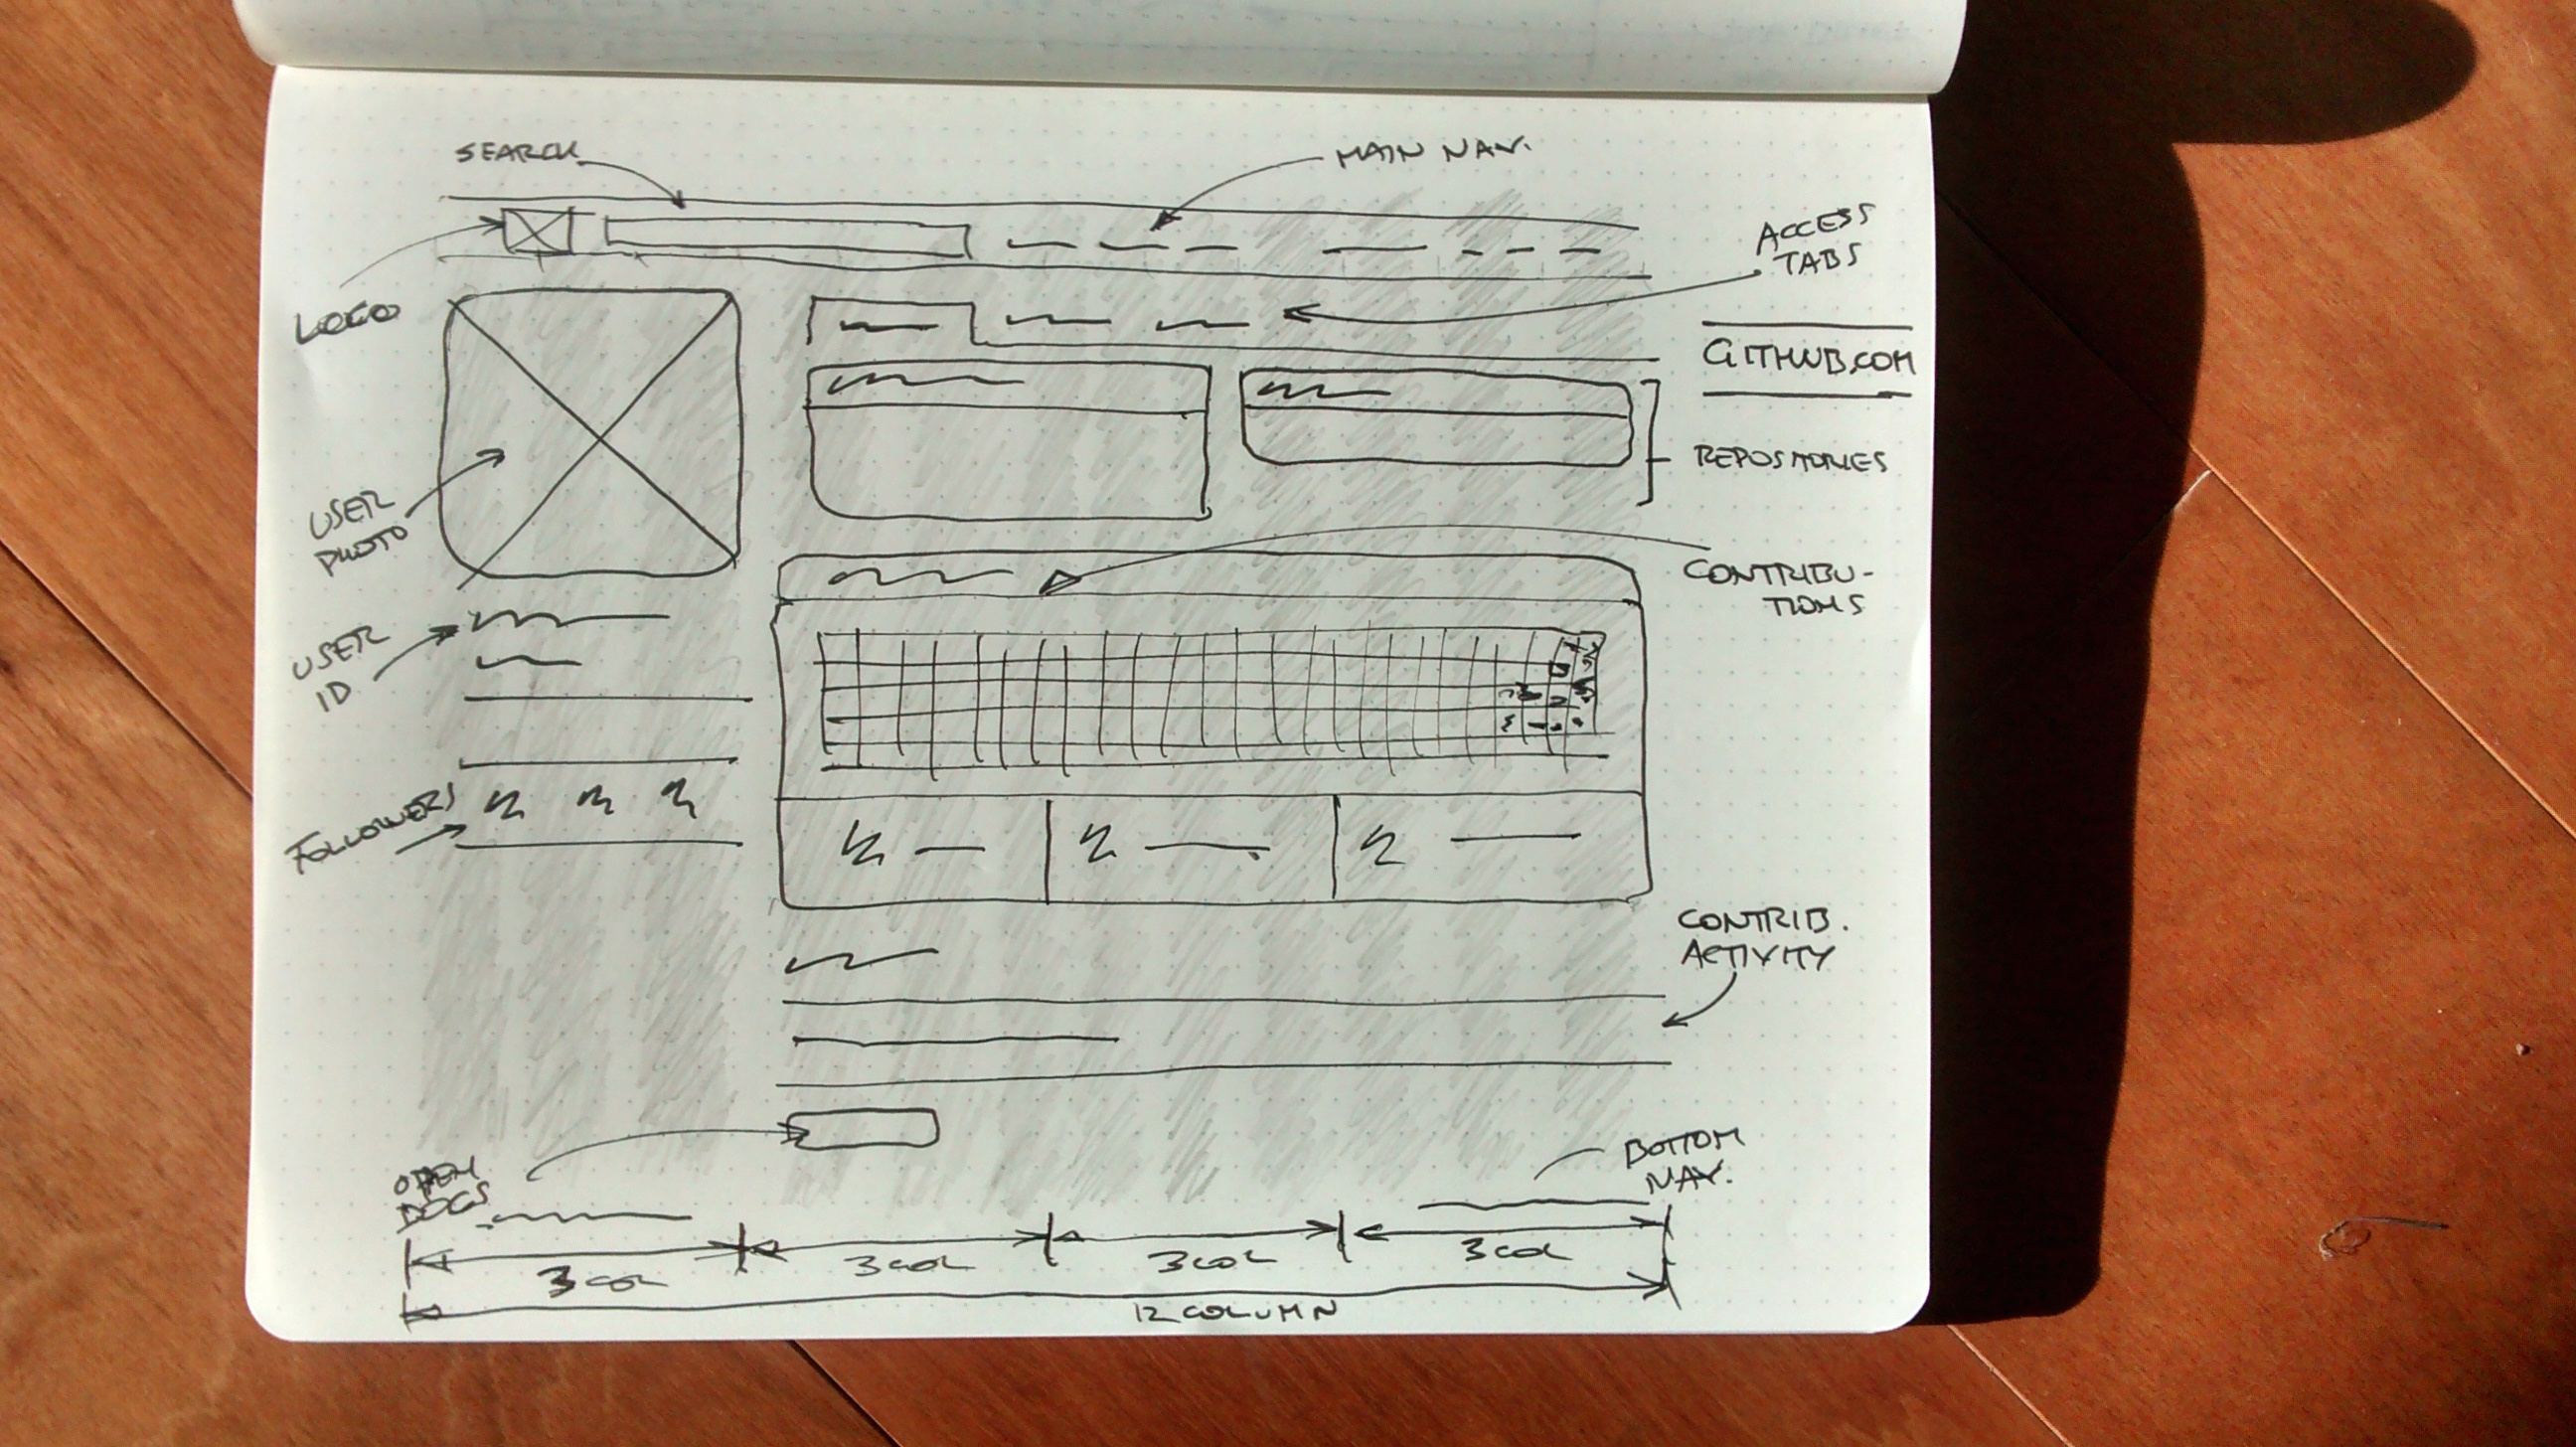 SEARCH
MAIN NAV.
ACCESS
TABS
LOGO
GITHUB.COM
REPOSITORIES
USER
PHOTO
CONTRIBU-
TIONS
USER
ID
FOLLOWERS
CONTRIB.
ACTIVITY
BOTTOM
NAV.
OPEN
DOCS
3 COL
3 COL
3 COL
3 COL
12 COLUMN